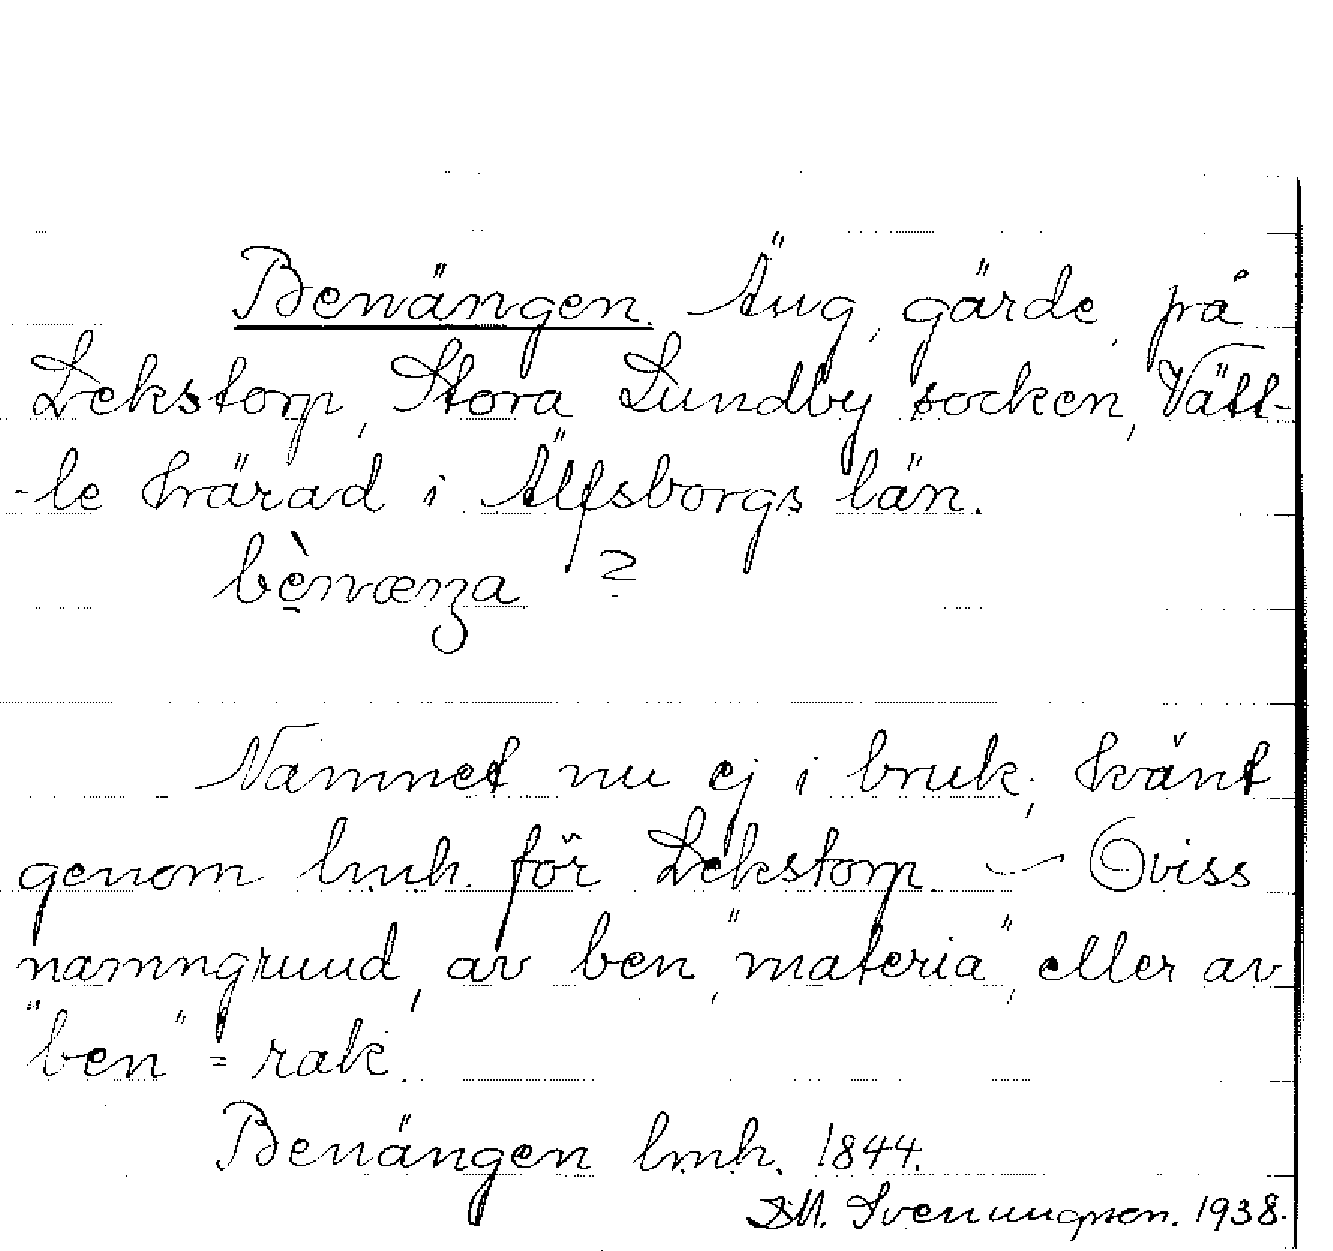 Benängen. Äng, gärde, på
Lekstorp, Stora Lundby socken, Vätt-
-le härad i Älfsborgs län.
bènæŋa ?
Namnet nu ej i bruk; känt
genom lmh. för Lekstorp. — Oviss
namngrund, av ben, "materia", eller av
"ben" = rak.
Benängen lmh. 1844.
Svenungson. 1938.